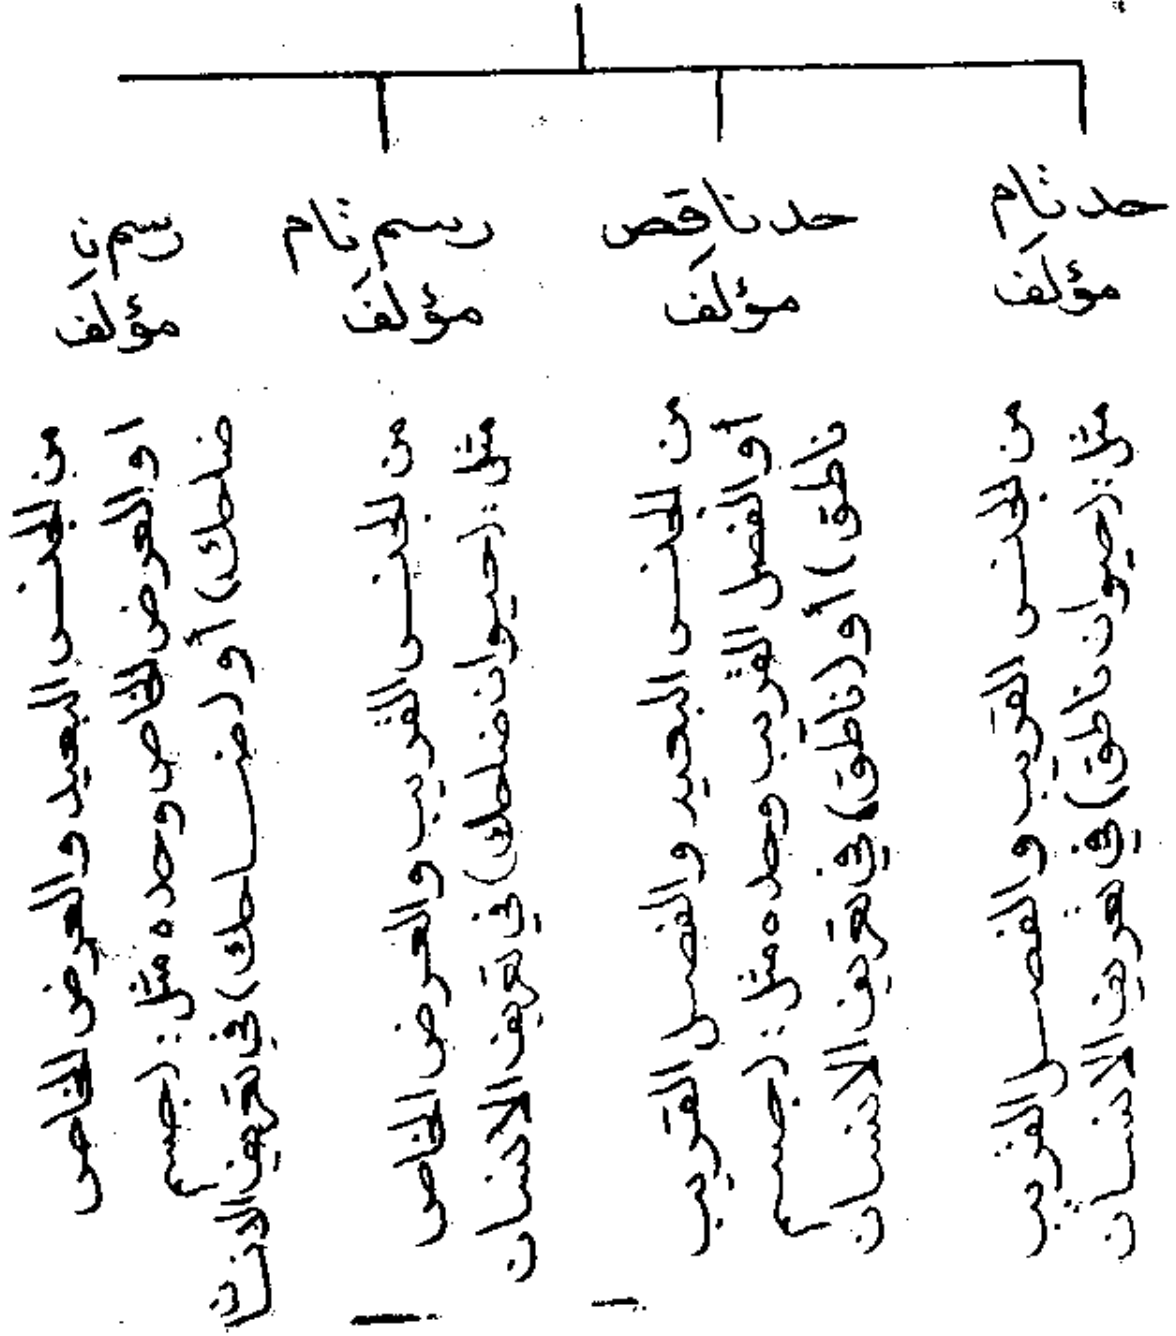 حد تام
مؤلف
من الجنس القريب والفصل القريب
مثل: (حيوان ناطق) في تعريف الانسان
حد ناقص
مؤلف
من الجنس البعيد والفصل القريب
أو الفصل القريب وحده مثل: (جسم
ناطق) أو (ناطق) في تعريف الانسان
رسم تام
مؤلف
من الجنس القريب والعرض الخاص
مثل: (حيوان ضاحك) في تعريف الانسان
رسم نا
مؤلف
من الجنس البعيد والعرض الخاص
او العرض الخاص وحده مثل: (جسم
ضاحك) أو (ضاحك) في تعريف